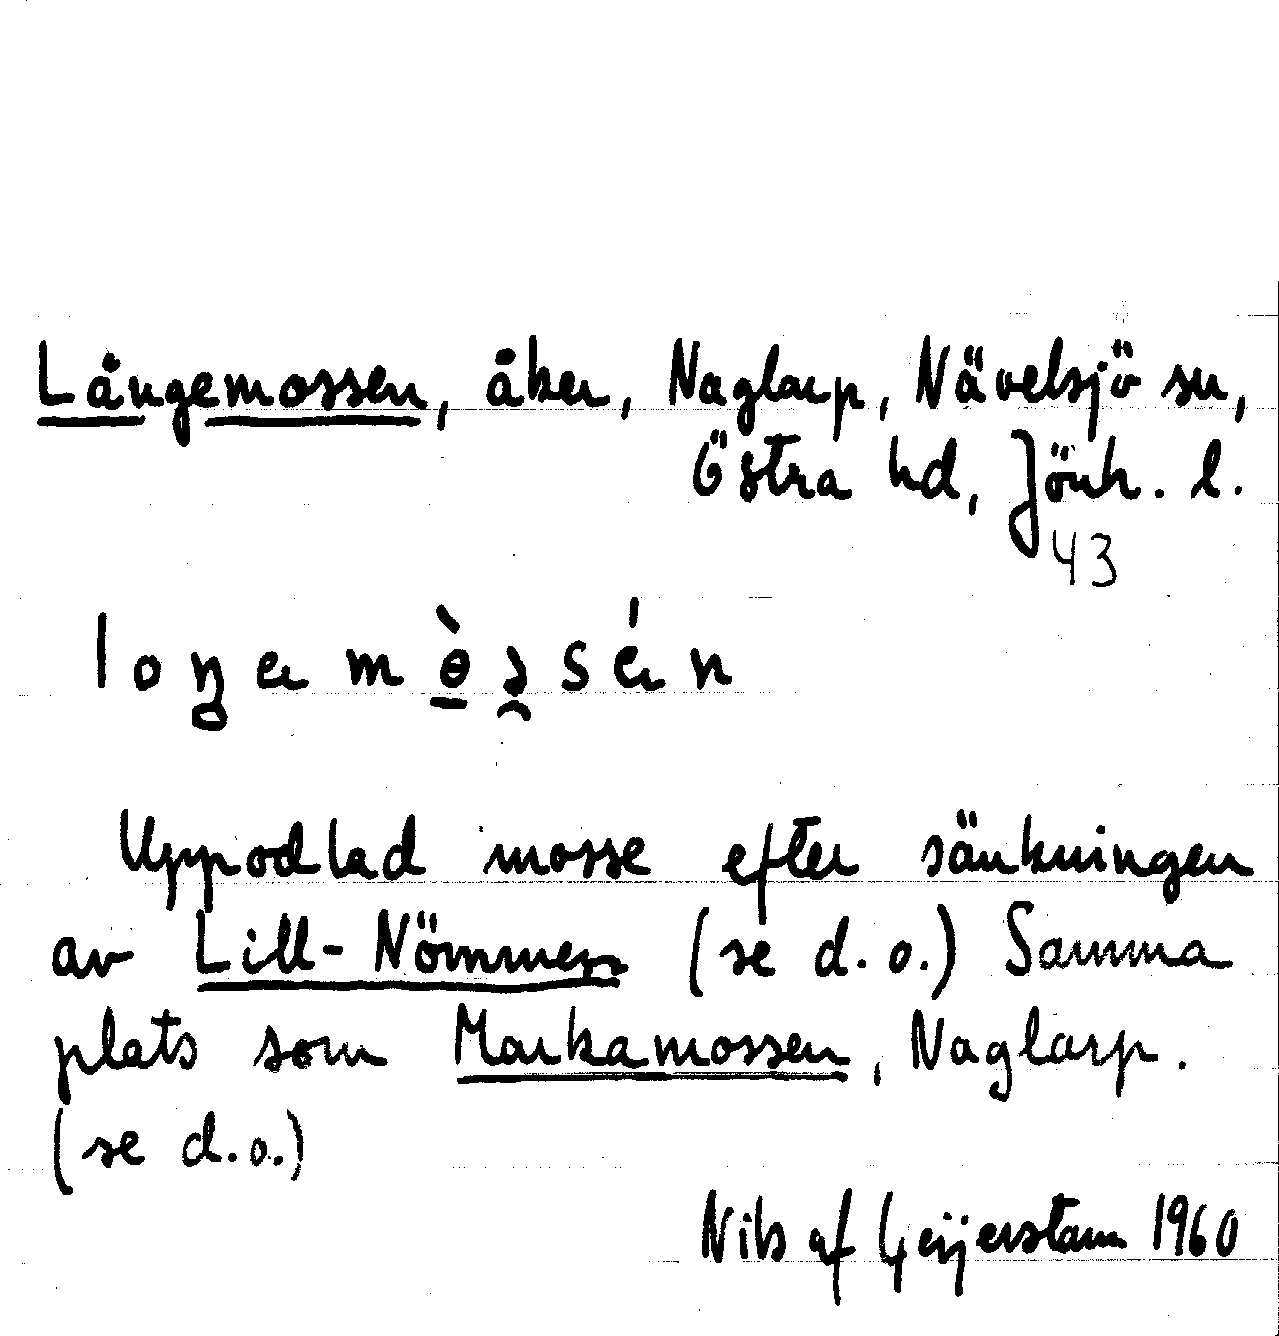 Långemossen, åker, Naglarp, Nävelsjö sn,
Östra hd, Jönk. l.
43
Uppodlad mosse efter sänkningen
av Lill-Nömmen (se d.o.) Samma
plats som Markamossen, Naglarp.
(se d.o.)
Nils af Geijerstam 1960